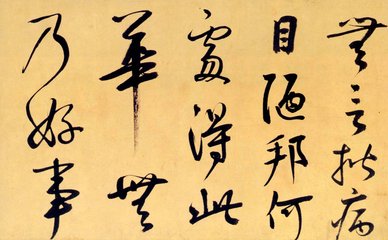 無言揩病
目陋邦何
處得此
華無
乃好事